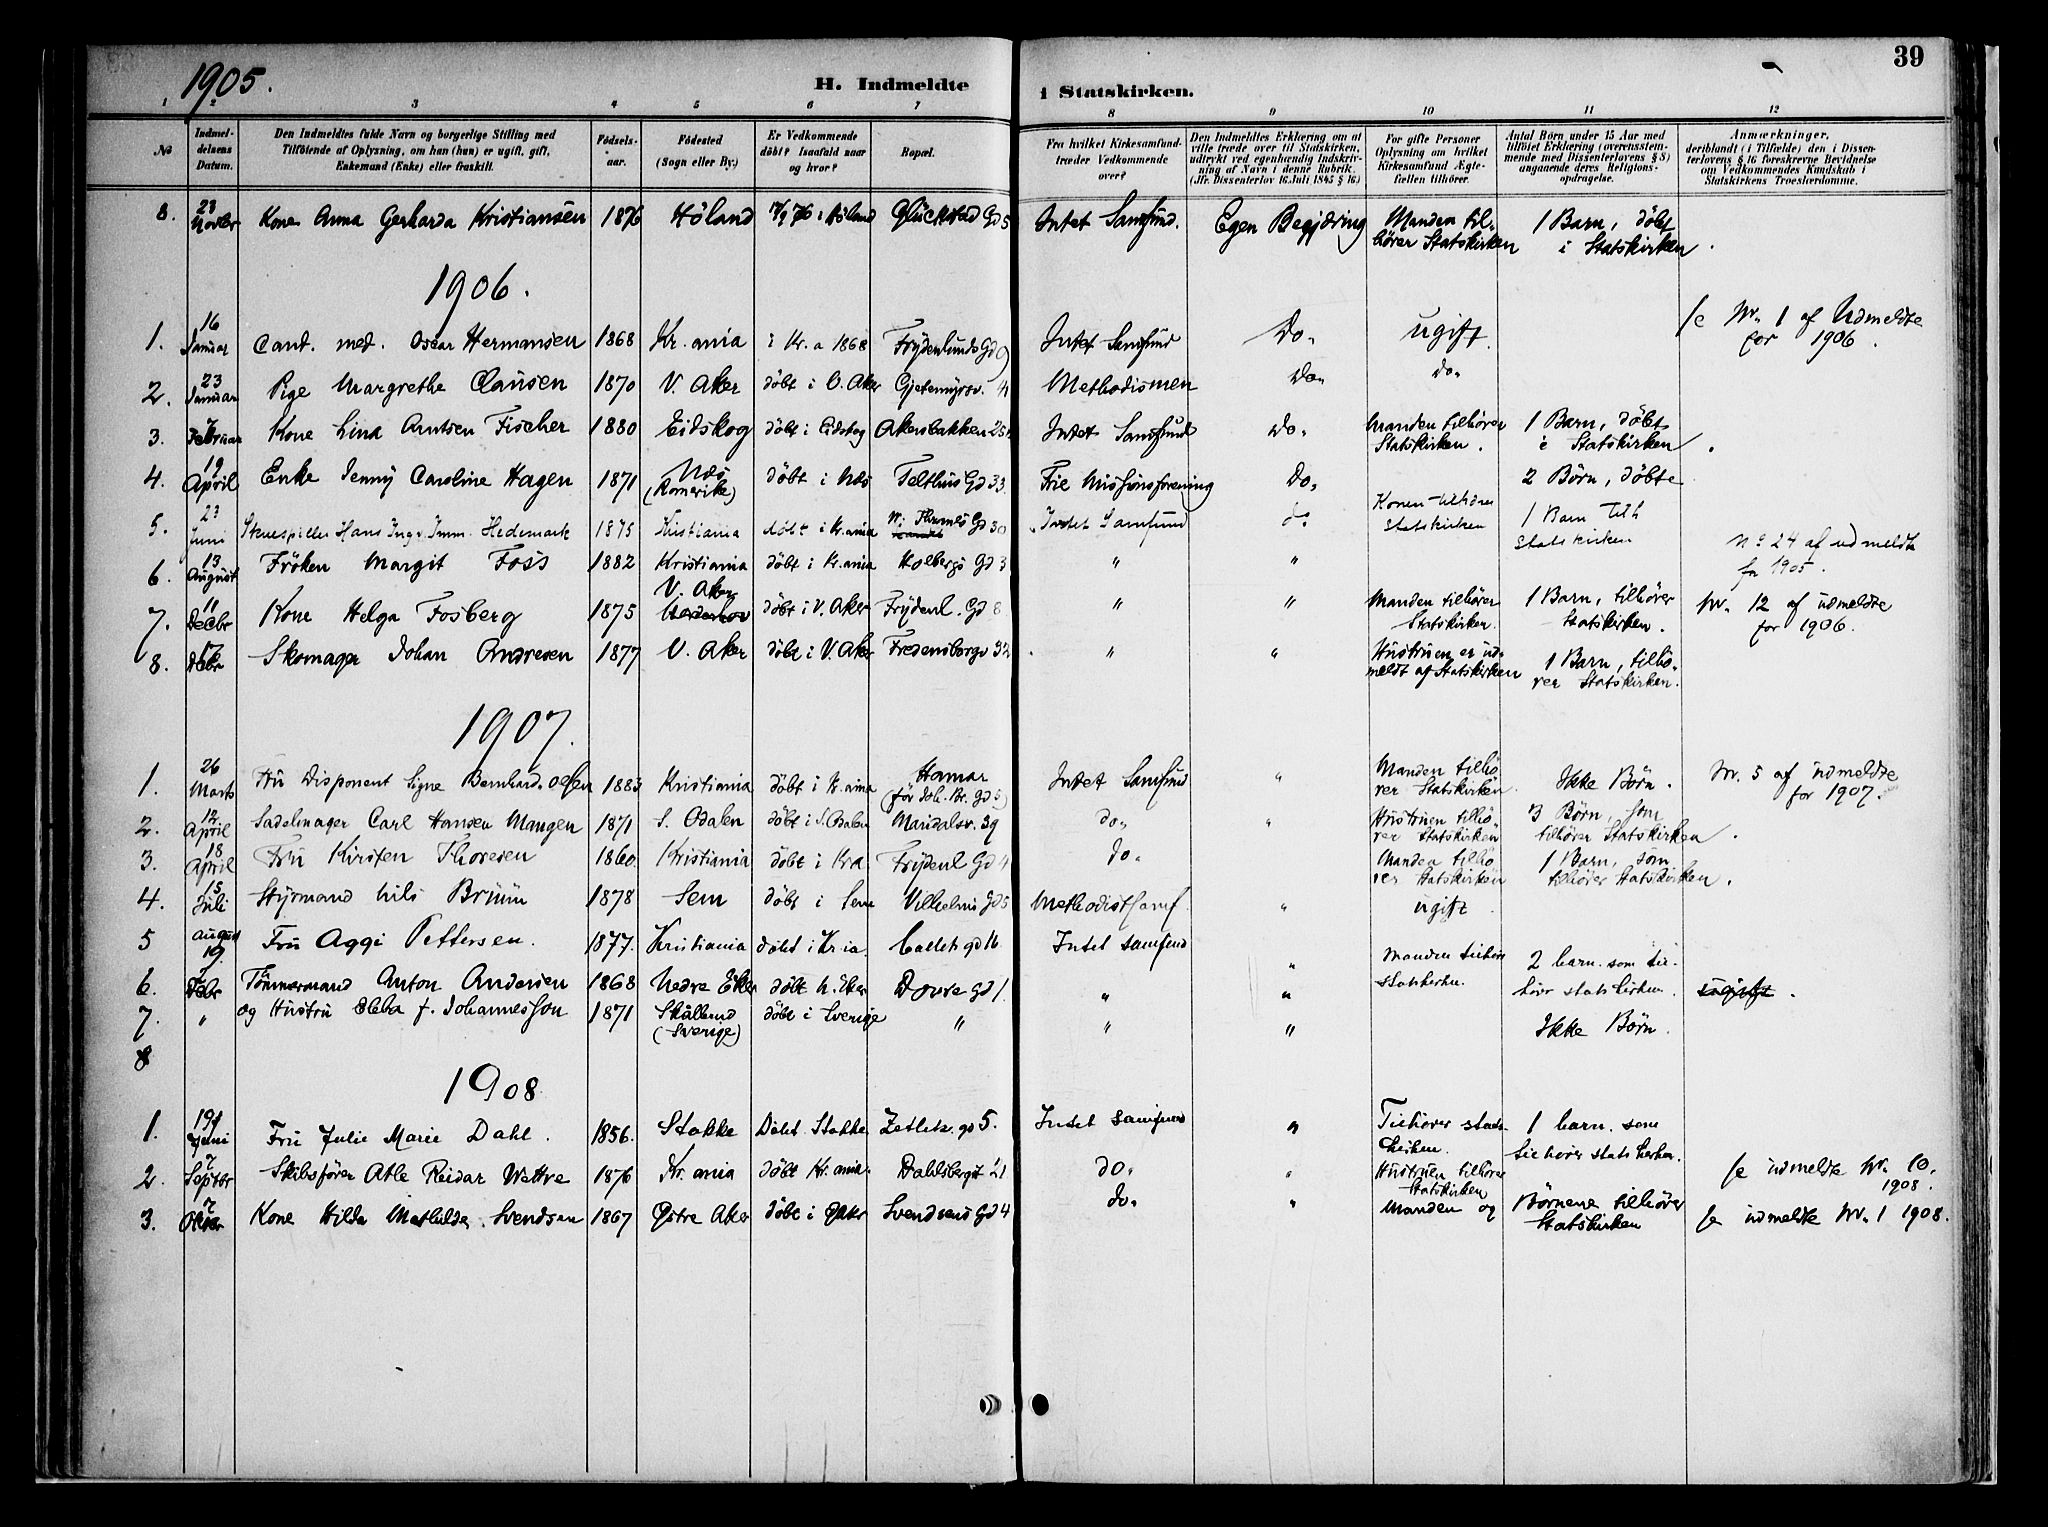 39
1905.
H. Indmeldte i Statskirken.
1 2 3 4 5 6 7 8 9 10 11 12
No
Indmel-
delsens
Datum.
Den Indmeldtes fulde Navn og borgerlige Stilling med
Tilföiende af Oplysning, om han (hun) er ugift, gift,
Enkemand (Enke) eller fraskilt.
Födsels-
aar.
Födested
(Sogn eller By.)
Er Vedkommende
döbt? Isaafald naar
og hvor?
Bopæl.
Fra hvilket Kirkesamfund
træder Vedkommende
over?
Den Indmeldtes Erklæring om at
ville træde over til Statskirken,
udtrykt ved egenhændig Indskriv-
ning af Navn i denne Rubrik.
(Jfr. Dissenterlov 16. Juli 1845 § 16)
For gifte Personer
Oplysning om hvilket
Kirkesamfund Ægte-
fællen tilhörer.
Antal Börn under 15 Aar med
tilföiet Erklæring (overensstem-
mende med Dissenterlovens § 8)
angaaende deres Religions-
opdragelse.
Anmærkninger,
deriblandt (i Tilfælde) den i Dissen-
terlovens § 16 foreskrevne Bevidnelse
om Vedkommendes Kundskab i
Statskirkens Troesherdomme.
8. 23 Novbr Kone Anna Gerharda Kristiansen 1876 Höland 17/9 76 i Höland Glückstad Gd 5 Intet Samfund. Egen Begjæring Manden til-
hörer Statskirken 1 Barn, döbt
i Statskirken.
1906.
1. 16 Januar Cand. med. Oscar Hermansen 1868 Kr.ania i Kr.a 1868 Frydenlunds Gd 9 Intet Samfund Do. ugift. se Nr. 1 af Udmeldte
for 1906.
2. 23 Januar Pige Margrethe Clausen 1870 V. Aker döbt i V. Aker Gjetemyrsv. 4 Methodismen Do. Do.
3. Februar Kone Lina Arntsen Fischer 1880 Eidskog döbt i Eidskog Akersbakken 25 Intet Samfund Do. Manden tilhörer
Statskirken. 1 Barn, döbt
i Statskirken.
4. 19 April Enke Jenny Caroline Hagen 1871 Næs
(Romerike) döbt i Næs Telthus Gd 33 Frie Missionsforening Do. 2 Börn, döbte
5. 23 Juni Skuespiller Hans Ingv. Imm. Hedemark 1875 Kristiania döbt i Kr.ania Gd 30 Intet Samfund do. Konen tilhörer
Statskirken 1 Barn tilh
Statskirken
6. 13 August Fröken Margit Foss 1882 Kristiania döbt i Kr.ania Holbergs Gd 3 " " No 24 af udmeldte
for 1905.
7. 11 Decbr Kone Helga Fosberg 1875 V. Aker döbt i V. Aker Frydenl. Gd 8 " " Manden tilhörer
Statskirken. 1 Barn, tilhörer
Statskirken. Nr. 12 af udmeldte
for 1906.
8. 17 Debr Skomager Johan Andresen 1877 V. Aker döbt i V. Aker Fredensborgv 32 " " Hustruen er ud-
meldt af Statskirken 1 Barn, tilhö-
rer Statskirken.
1907.
1. 26 Marts Fru Disponent Signe Bernhard-Olsen 1883 Kristiania döbt i Kr.ania Hamar
(för Joh. Br. Gd 5) Intet Samfund " Manden tilhö
rer Statskirken. Ikke Börn. Nr. 5 af udmeldte
for 1907.
2. 12 April Sadelmager Carl Hansen Mangen 1871 S. Odalen döbt i S. Odalen Maridalsv. 39 do. " Hustruen tilhö-
rer Statskirken 3 Börn, som
tilhörer Statskirken.
3. 18 April Fru Kirsten Thoresen 1860 Kristiania döbt i Kra Frydenl Gd 4 do. Manden tilhö
rer Statskirken 1 Barn, som
tilhörer Statskirken.
4. 15 Juli Styrmand Nils Bruun 1878 Sem döbt i Sem Vilhelms Gd 5 Methodistsamf. " ugift.
5 August 19. Fru Aggi Pettersen. 1877. Kristiania döbt i Kr.ia. gd 16 Intet samfund " Manden tilhörer
statskirken. 2 barn. som til-
hörer statskirken.
6. 7 Debr Tömmermand Anton Andersen 1868 Nedre Eker döbt N. Eker Dovre gd 1. " " ugift.
7. " og Hustru Ebba f. Johannesson 1871 (Sverige) döbt i Sverige " " " Ikke Börn.
8
1908.
1. 19 Juni Fru Julie Marie Dahl. 1856. Stokke Döbt Stokke Zetlitz gd 5. Intet samfund " Tilhörer stats-
kirken. 1 barn. som
tilhörer statskirken.
2. 7 Septbr Skibsförer Atle Reidar Wettre 1876 Kr.ania döbt Kr.ania. Dahlsbergst 21 do. " Hustruen tilhörer
Statskirken se udmeldte Nr. 10.
1908.
3. 7 Kone Hilda Mathilda Svendsen 1867 Østre Aker döbt i Ø Aker Svendsens Gd 4 do. " Manden og Börnene tilhörer
Statskirken se udmeldte Nr. 1 1908.